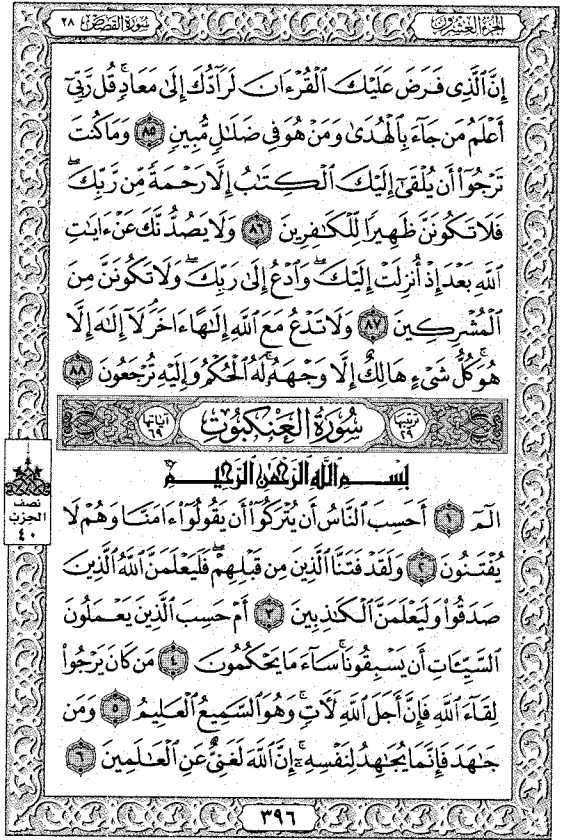 الجزء العشرون
سورة القصص ٢٨
إِنَّ ٱلَّذِى فَرَضَ عَلَيْكَ ٱلْقُرْءَانَ لَرَآدُّكَ إِلَىٰ مَعَادٍ ۚ قُل رَّبِّىٓ
أَعْلَمُ مَن جَآءَ بِٱلْهُدَىٰ وَمَنْ هُوَ فِى ضَلَٰلٍ مُّبِينٍ ٨٥ وَمَا كُنتَ
تَرْجُوٓا۟ أَن يُلْقَىٰٓ إِلَيْكَ ٱلْكِتَٰبُ إِلَّا رَحْمَةً مِّن رَّبِّكَ ۖ
فَلَا تَكُونَنَّ ظَهِيرًا لِّلْكَٰفِرِينَ ٨٦ وَلَا يَصُدُّنَّكَ عَنْ ءَايَٰتِ
ٱللَّهِ بَعْدَ إِذْ أُنزِلَتْ إِلَيْكَ ۖ وَٱدْعُ إِلَىٰ رَبِّكَ ۖ وَلَا تَكُونَنَّ مِنَ
ٱلْمُشْرِكِينَ ٨٧ وَلَا تَدْعُ مَعَ ٱللَّهِ إِلَٰهًا ءَاخَرَ ۘ لَآ إِلَٰهَ إِلَّا
هُوَ ۚ كُلُّ شَىْءٍ هَالِكٌ إِلَّا وَجْهَهُۥ ۚ لَهُ ٱلْحُكْمُ وَإِلَيْهِ تُرْجَعُونَ ٨٨
ترتيبها ٢٩
سورة العنكبوت
آياتها ٦٩
بِسْمِ ٱللَّهِ ٱلرَّحْمَٰنِ ٱلرَّحِيمِ
الٓمٓ ١ أَحَسِبَ ٱلنَّاسُ أَن يُتْرَكُوٓا۟ أَن يَقُولُوٓا۟ ءَامَنَّا وَهُمْ لَا
يُفْتَنُونَ ٢ وَلَقَدْ فَتَنَّا ٱلَّذِينَ مِن قَبْلِهِمْ ۖ فَلَيَعْلَمَنَّ ٱللَّهُ ٱلَّذِينَ
صَدَقُوا۟ وَلَيَعْلَمَنَّ ٱلْكَٰذِبِينَ ٣ أَمْ حَسِبَ ٱلَّذِينَ يَعْمَلُونَ
ٱلسَّيِّـَٔاتِ أَن يَسْبِقُونَا ۚ سَآءَ مَا يَحْكُمُونَ ٤ مَن كَانَ يَرْجُوا۟
لِقَآءَ ٱللَّهِ فَإِنَّ أَجَلَ ٱللَّهِ لَءَاتٍ ۚ وَهُوَ ٱلسَّمِيعُ ٱلْعَلِيمُ ٥ وَمَن
جَٰهَدَ فَإِنَّمَا يُجَٰهِدُ لِنَفْسِهِۦٓ ۚ إِنَّ ٱللَّهَ لَغَنِىٌّ عَنِ ٱلْعَٰلَمِينَ ٦
نصف
الحزب
٤٠
٣٩٦